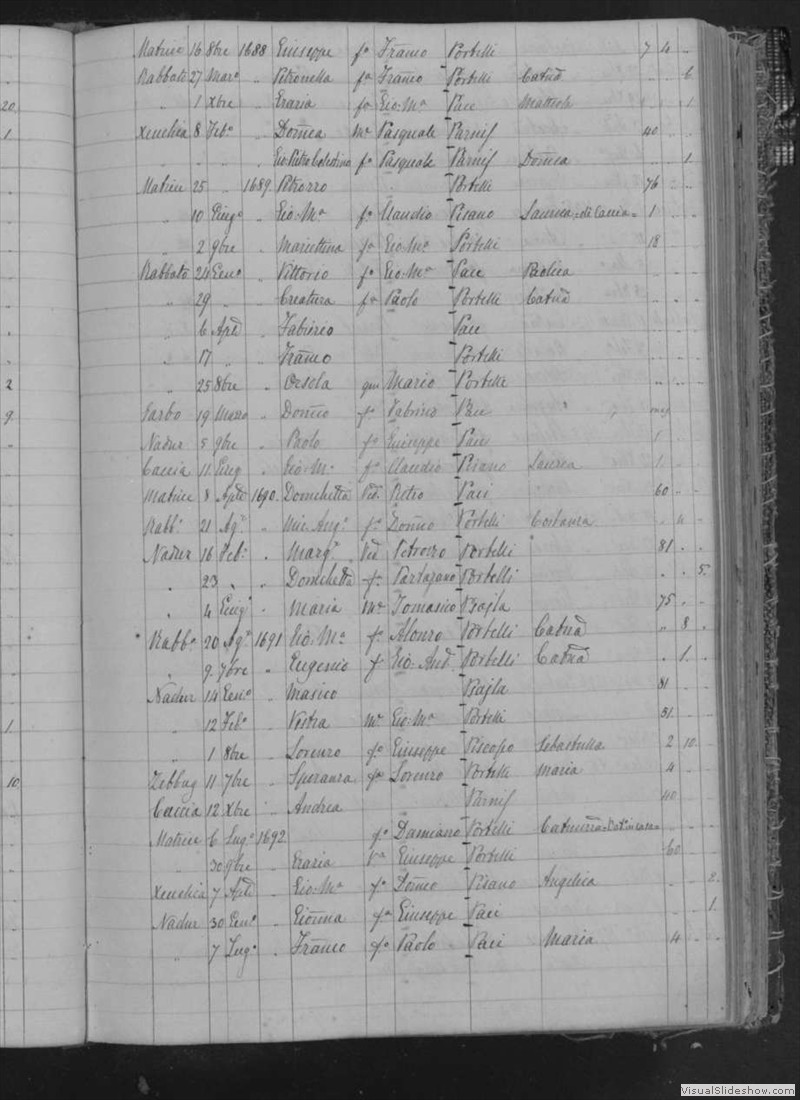 20
1
2
9
1
10
Matrice 16 8bre 1688 Giuseppe fo Franco Portelli 7 4 ..
Rabbato 27 Marzo .. Petronella fa Franco Portelli Catna .. .. 6
.. 1 Xbre .. Grazia fa Gio. Ma Pace 1
Xeuchia 8 Febo .. Domca Me Pasquale Parnis 40
.. .. Gio Pietro Celestino fo Pasquale Parnis Domca .. 1
Matrice 25 .. 1689 Petrozzo Portelli 76 ..
.. 10 .. Gio. Ma fo Claudio Pisano Laurica di Caccia 1
.. 2 9bre .. fa Gio. Ma Portelli 18
Rabbato 24 Geno .. Vittorio fo Gio. Ma Pace Paolica
.. 29 .. Creatura fo Paolo Portelli Catna
.. 6 Aple Fabrizio Pace
.. 17 .. Franco Portelli
.. 25 8bre .. Orsola qm Mario Portelli
Garbo 19 Marzo .. Domco fo Fabrizio Pace
Nadur 5 9bre .. Paolo fo Giuseppe Pace 1
Caccia 11 Giug .. Gio. Ma fo Claudio Pisano Laurea 1
Matrice 8 Aple 1690. Domchetta Ved. Pietro Paci 60
Rabbo 21 Ago .. Mic. Ango fo Domco Portelli Costanza .. 11
Nadur 16 Febo .. Margta Ved Petrozzo Portelli 81 .
. 23 . . Domchetta fa Portelli . . 5
. 4 Giugo . Maria Me Tomasico Bajla 75
Rabbo 20 Ago 1691 Gio. Ma fo Alonzo Portelli Catna .. 8
. 9 7bre .. Eugenio f Gio. And Portelli Catna . 1
Nadur 14 Geno .. Masico Bajla 81
.. 12 Febo .. Me Gio. Ma Portelli 31
.. 1 8bre .. Lorenzo fo Giuseppe Piscopo Sebastulla 2 10
Zebbug 11 7bre .. Speranza fa Lorenzo Portelli Maria 4
Caccia 12 Xbre .. Andrea Parnis 40
Matrice 6 Lugo 1692 fo Damiano Portelli
.. 30 9bre .. Grazia Va Giuseppe Portelli 60
Xeuchia 7 Aple .. Gio. Ma fo Domco Pisano Angelica .. 2
Nadur 30 Geno .. Gionna fa Giuseppe Paci .. 1
.. 7 Lugo .. Franco fo Paolo Paci Maria 4
VisualSlideshow.com